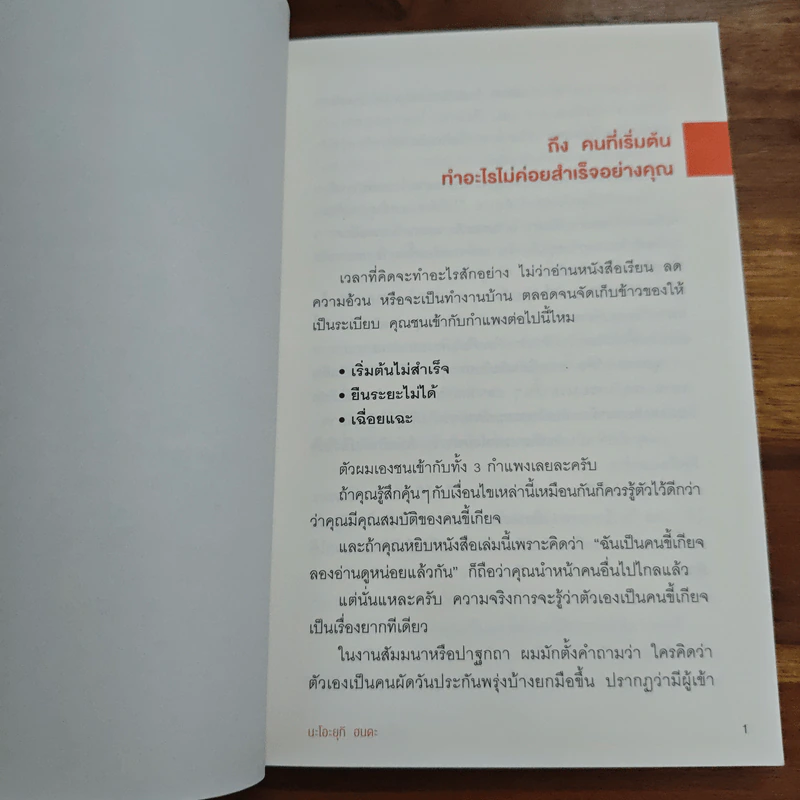 ถึง คนที่เริ่มต้น
ทำอะไรไม่ค่อยสำเร็จอย่างคุณ
เวลาที่คิดจะทำอะไรสักอย่าง ไม่ว่าอ่านหนังสือเรียน ลด
ความอ้วน หรือจะเป็นทำงานบ้าน ตลอดจนจัดเก็บข้าวของให้
เป็นระเบียบ คุณชนเข้ากับกำแพงต่อไปนี้ไหม
• เริ่มต้นไม่สำเร็จ
• ยืนระยะไม่ได้
• เฉื่อยแฉะ
ตัวผมเองชนเข้ากับทั้ง 3 กำแพงเลยละครับ
ถ้าคุณรู้สึกคุ้นๆกับเงื่อนไขเหล่านี้เหมือนกันก็ควรรู้ตัวไว้ดีกว่า
ว่าคุณมีคุณสมบัติของคนขี้เกียจ
และถ้าคุณหยิบหนังสือเล่มนี้เพราะคิดว่า “ฉันเป็นคนขี้เกียจ
ลองอ่านดูหน่อยแล้วกัน” ก็ถือว่าคุณนำหน้าคนอื่นไปไกลแล้ว
แต่นั่นแหละครับ ความจริงการจะรู้ว่าตัวเองเป็นคนขี้เกียจ
เป็นเรื่องยากทีเดียว
ในงานสัมมนาหรือปาฐกถา ผมมักตั้งคำถามว่า ใครคิดว่า
ตัวเองเป็นคนผัดวันประกันพรุ่งบ้างยกมือขึ้น ปรากฏว่ามีผู้เข้า
นะโอะยุกิ ฮนดะ 1